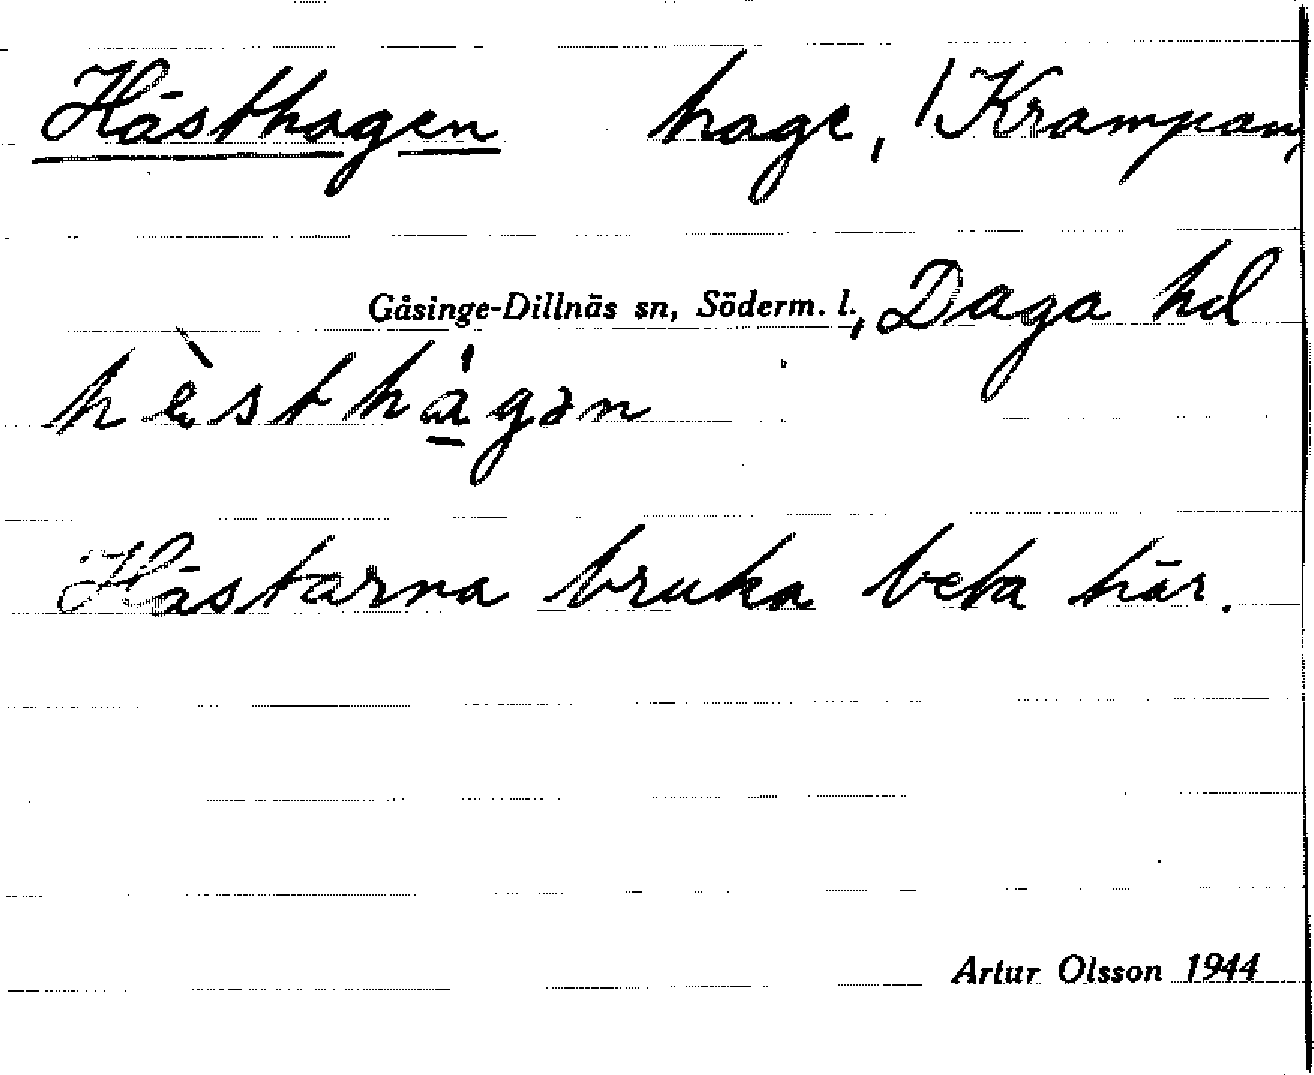 Hästhagen hage, /Krampan,
Gåsinge-Dillnäs sn, Söderm. l., Daga hd
hèsthá̱gən
Hästarna bruka beta här.
Artur Olsson 1944